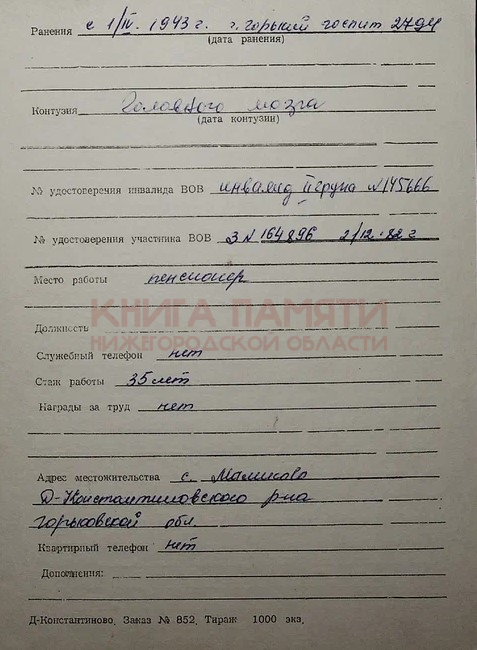 Ранения с 1/IV. 1943 г. г. горький госпит 2794
(дата ранения)
Контузия Головного мозга
(дата контузии)
№ удостоверения инвалида ВОВ инвалид II группа №145666
№ удостоверения участника ВОВ 3 N 164896 2/12.82 г
Место работы пенсионер
КНИГА ПАМЯТИ
НИЖЕГОРОДСКОЙ ОБЛАСТИ
Должность
Служебный телефон нет
Стаж работы 35 лет
Награды за труд нет
Адрес местожительства с.
Д-Константиновского р-на
горьковской обл.
Квартирный телефон нет
Дополнения:
Д-Константиново. Заказ № 852. Тираж 1000 экз.